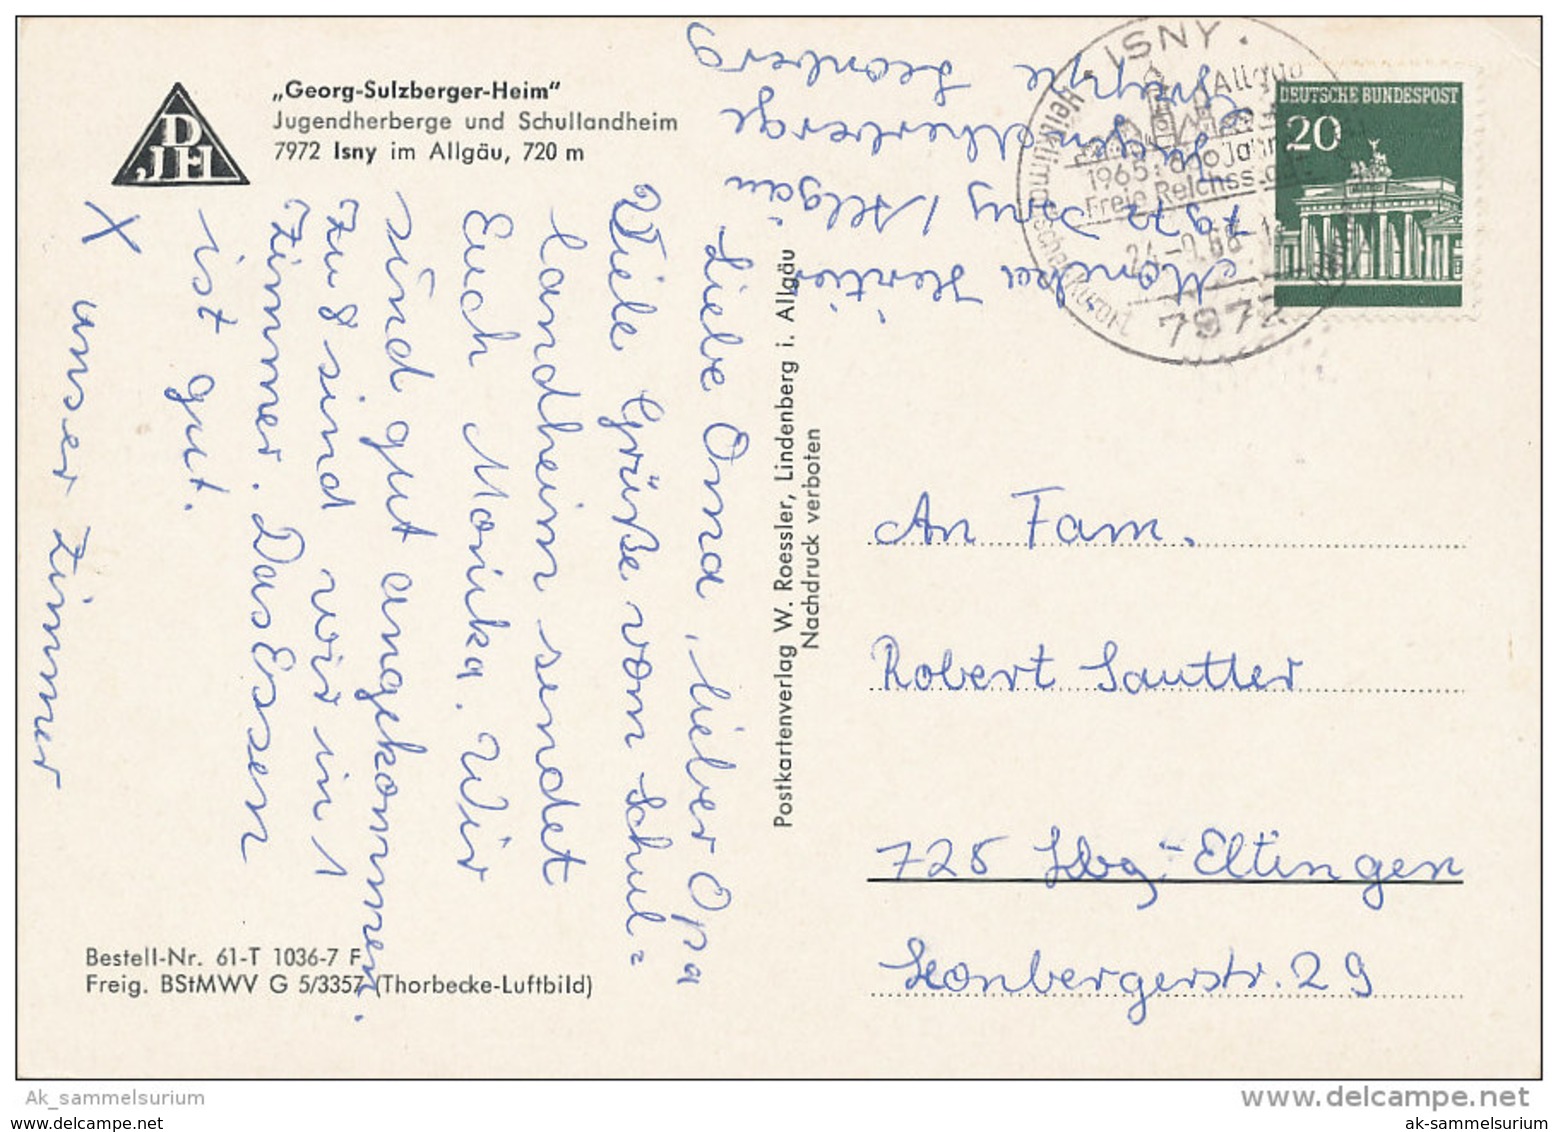 „Georg-Sulzberger-Heim“
Jugendherberge und Schullandheim
7972 Isny im Allgäu, 720 m
DJH
Liebe Oma, lieber Opa
Viele Grüße vom Schul=
landheim sendet
Euch Monika. Wir
sind gut angekommen.
Zu 8 sind wir in 1
Zimmer. Das Essen
ist gut.
X unser Zimmer
Bestell-Nr. 61-T 1036-7 F
Freig. BStMWV G 5/3357 (Thorbecke-Luftbild)
Postkartenverlag W. Roessler, Lindenberg i. Allgäu
Nachdruck verboten
Monika
7972 Isny / Allgäu
Jugendherberge
Gruppe Leonberg
· ISNY ·
Allgäu
1965: 600 Jahre
Freie Reichsstadt
Heilklimatischer Kurort
7972
DEUTSCHE BUNDESPOST
20
An Fam.
Robert Sautter
725 Lbg.-Eltingen
Leonbergerstr. 29
Ak_sammelsurium
www.delcampe.net
www.delcampe.net
ak-sammelsurium